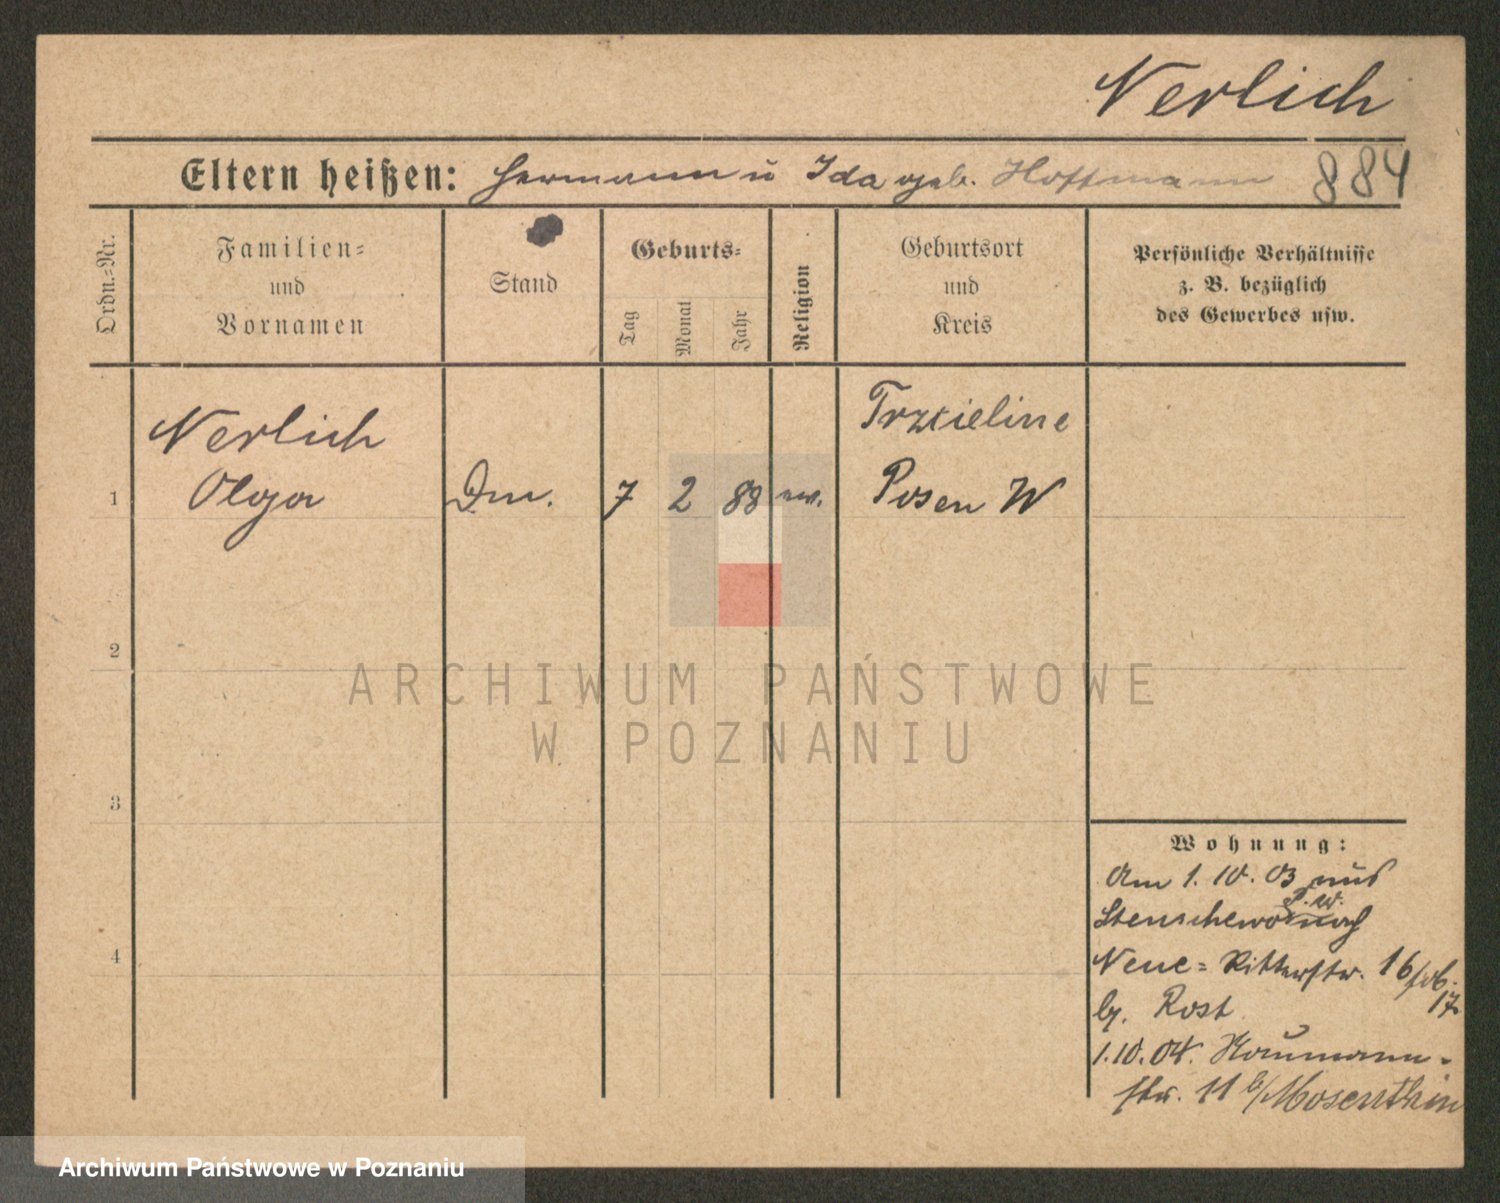 Nerlich
Eltern heißen: Hermann u Ida geb. Hoffmann 884
Ordn.-Nr.
Familien-
und
Vornamen
Stand
Geburts-
Tag
Monat
Jahr
Religion
Geburtsort
und
Kreis
Persönliche Verhältnisse
z. B. bezüglich
des Gewerbes usw.
Nerlich
Trzcieline
1 Olga 7 2 88 ev. Posen W
2
3
4
Wohnung:
Am 1.10.03 aus
P. W.
Stenschewo nach
Neue-Ritterstr. 16
17
b. Rost
1.10.04. Naumann-
str. 11 b/Mosenthin
ARCHIWUM PAŃSTWOWE
W POZNANIU
Archiwum Państwowe w Poznaniu